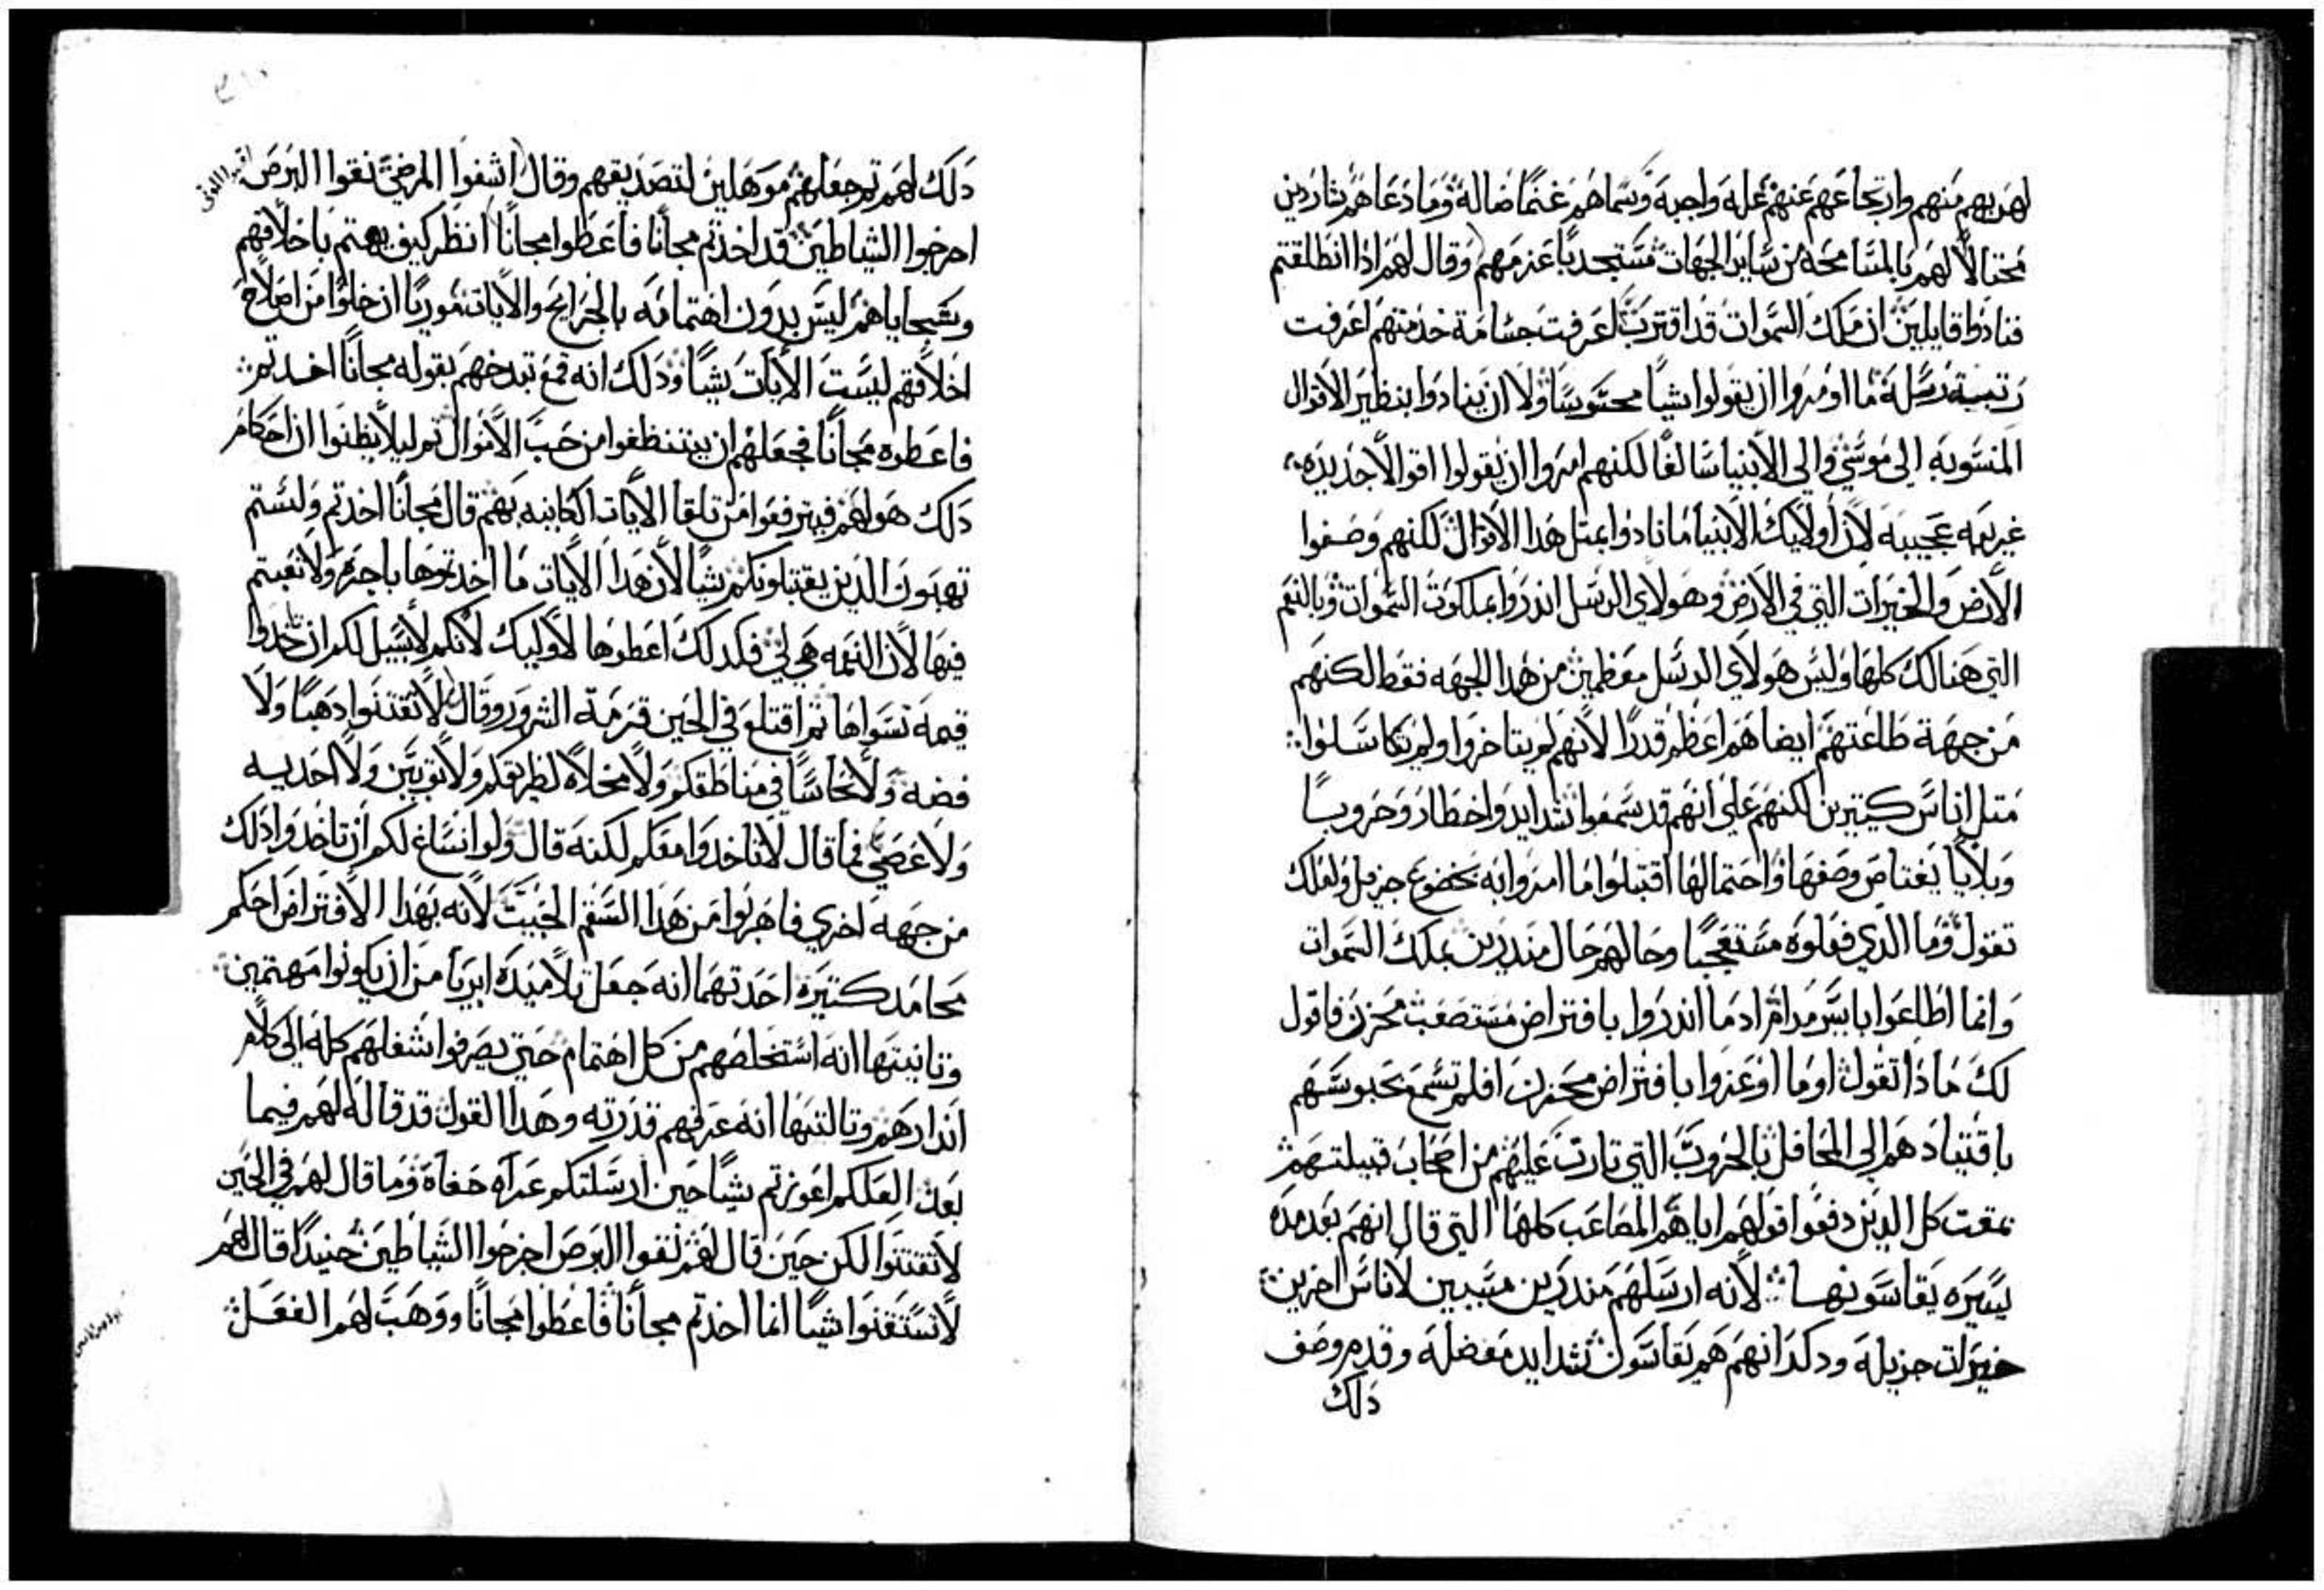 لهربهم منهم وارتجاعهم عنهم علة واجبة وسماهم غنمًا ضالة وما دعاهم شاردين
محتالاً لهم بالمسامحة من ساير الجهات مستجدبًا عزمهم وقال لهم اذا انطلقتم
فنادوا قايلين ان ملك السموات قد اقترب اعرفت جسامة خدمتهم اعرفت
رتبة رسله ما اومروا ان يقولوا شيًا محسوسًا ولا ان ينادوا بنظير الاقوال
المنسوبه الى موسى والى الانبيا سالفًا لكنهم امروا ان يقولوا اقوالاً جديده
غريبه عجيبه لان اولايك الانبيا ما نادوا بمثل هدا الاقوال لكنهم وصفوا
الارض والخيرات التي في الارض وهولاي الرسل اندروا بملكوت السموات وبالنعم
التي هنالك كلها وليس هولاي الرسل معظمين من هدا الجهه فقط لكنهم
من جهة طاعتهم ايضا هم اعظم قدرًا لانهم لم يتاخروا ولم يتكاسلوا
مثل اناس كتيرين لكنهم على انهم قد سمعوا شدايد واخطار وحروبـًا
وبلايا يغتاص وصفها واحتمالها اقتبلوا ما امروا به بخضوع جزيل ولعلك
تقول وما الدي فعلوه مستعجبًا وحالهم حال مندرين بملك السموات
وانما اطاعوا بايسر مرام اد ما اندروا بافتراض مستصعب محزن فاقول
لك ماذا تقول اوما اوعزوا بافتراض محزن افلم تسمع بحبوسهم
باقتيادهم الى المحافل بالحروب التي تارت عليهم من اصحاب قبيلتهم
بمقت كل الدين دفعوا قولهم اياهم المصاعب كلها التي قال انهم بعد مده
يسيره يقاسونها لانه ارسلهم مندرين مسببين لاناس اخرين
خيرات جزيله ودكر انهم هم يقاسون شدايد معضله وقدم وصف
دلك
دلك لهم تم جعلهم موهلين لتصديقهم وقال اشفوا المرضى نقوا البرص
اخرجوا الشياطين قد اخدتم مجانًا فاعطوا مجانًا انظر كيف يهتم باخلاقهم
وسجاياهم ليس بدون اهتمامه بالجرايح والايات موريًا ان خلوًا من اصلاح
اخلاقهم ليست الايات شيًا ودلك انه قمع تبدخهم بقوله مجانًا اخدتم
فاعطوه مجانًا فجعلهم ان يتنظفوا من حب الاموال تم ليلا يظنوا ان احكام
دلك هو لهم فيترفعوا من تلقا الايات الكاينه بهم قال مجانًا اخدتم ولستم
تهبون الدين يقتبلونكم شيًا لان هدا الايات ما اخدتموها باجره ولا تعبتم
فيها لان النعمه هي لي فكدلك اعطوها لاوليك لانكم لا سبيل لكم ان تخدوا
قيمة تسواها ثم اقتلع في الحين قرمة الشرور وقال لا تقتنوا دهبًا ولا
فضه ولا نحاسًا في مناطقكم ولا مخلاه لطريقكم ولا توبين ولا احديه
ولا عصى فما قال لا تاخدوا معكم لكنه قال ولو انساغ لكم ان تاخدوا دلك
من جهه اخرى فاهربوا من هدا السقم الخبيت لانه بهدا الافتراض احكم
محامد كتيره احدتهما انه جعل تلاميده ابريا من ان يكونوا مهتمين
وتانيتها انه استخلصهم من كل اهتمام حتى يصرفوا شغلهم كله الى كلام
اندارهم وتالتتها انه عرفهم قدرته وهدا القول قد قاله لهم فيما
بعد العلكم اعوزتم شيًا حين ارسلتكم عراه حفاة وما قال لهم في الحين
لا تقتنوا لكن حين قال لهم نقوا البرص اخرجوا الشياطين حنيدًا قال لهم
لا تستقنوا شيًا انما اخدتم مجانًا فاعطوا مجانًا ووهب لهم الفعل